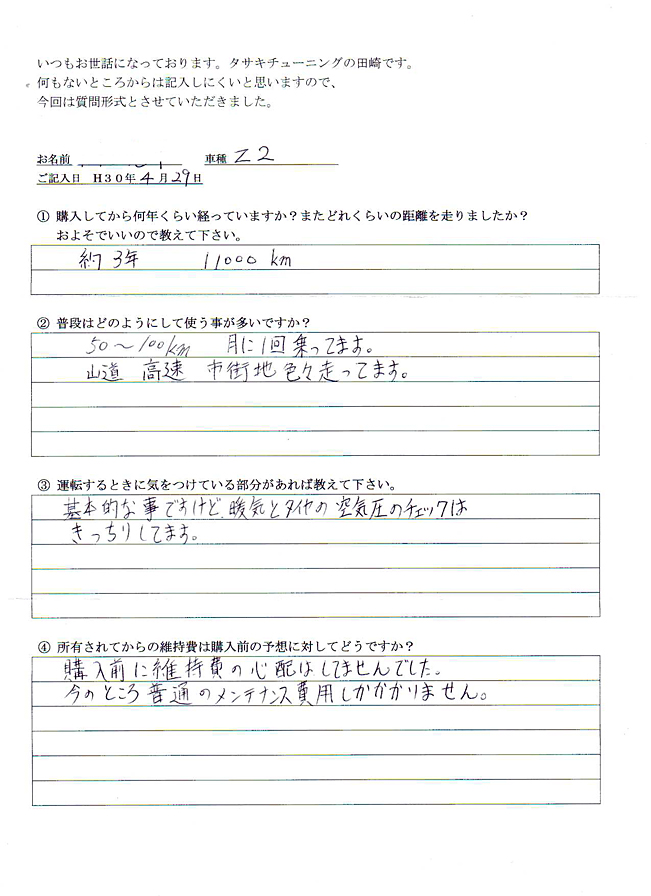 いつもお世話になっております。タサキチューニングの田崎です。
何もないところからは記入しにくいと思いますので、
今回は質問形式とさせていただきました。
お名前 車種 Z2
ご記入日 H30年4月29日
① 購入してから何年くらい経っていますか？またどれくらいの距離を走りましたか？
およそでいいので教えて下さい。
約3年 11000 km
② 普段はどのようにして使う事が多いですか？
50～100km 月に1回乗ってます。
山道 高速 市街地 色々走ってます。
③ 運転するときに気をつけている部分があれば教えて下さい。
基本的な事ですけど、暖気とタイヤの空気圧のチェックは
きっちりしてます。
④ 所有されてからの維持費は購入前の予想に対してどうですか？
購入前に維持費の心配はしてませんでした。
今のところ普通のメンテナンス費用しかかかりません。